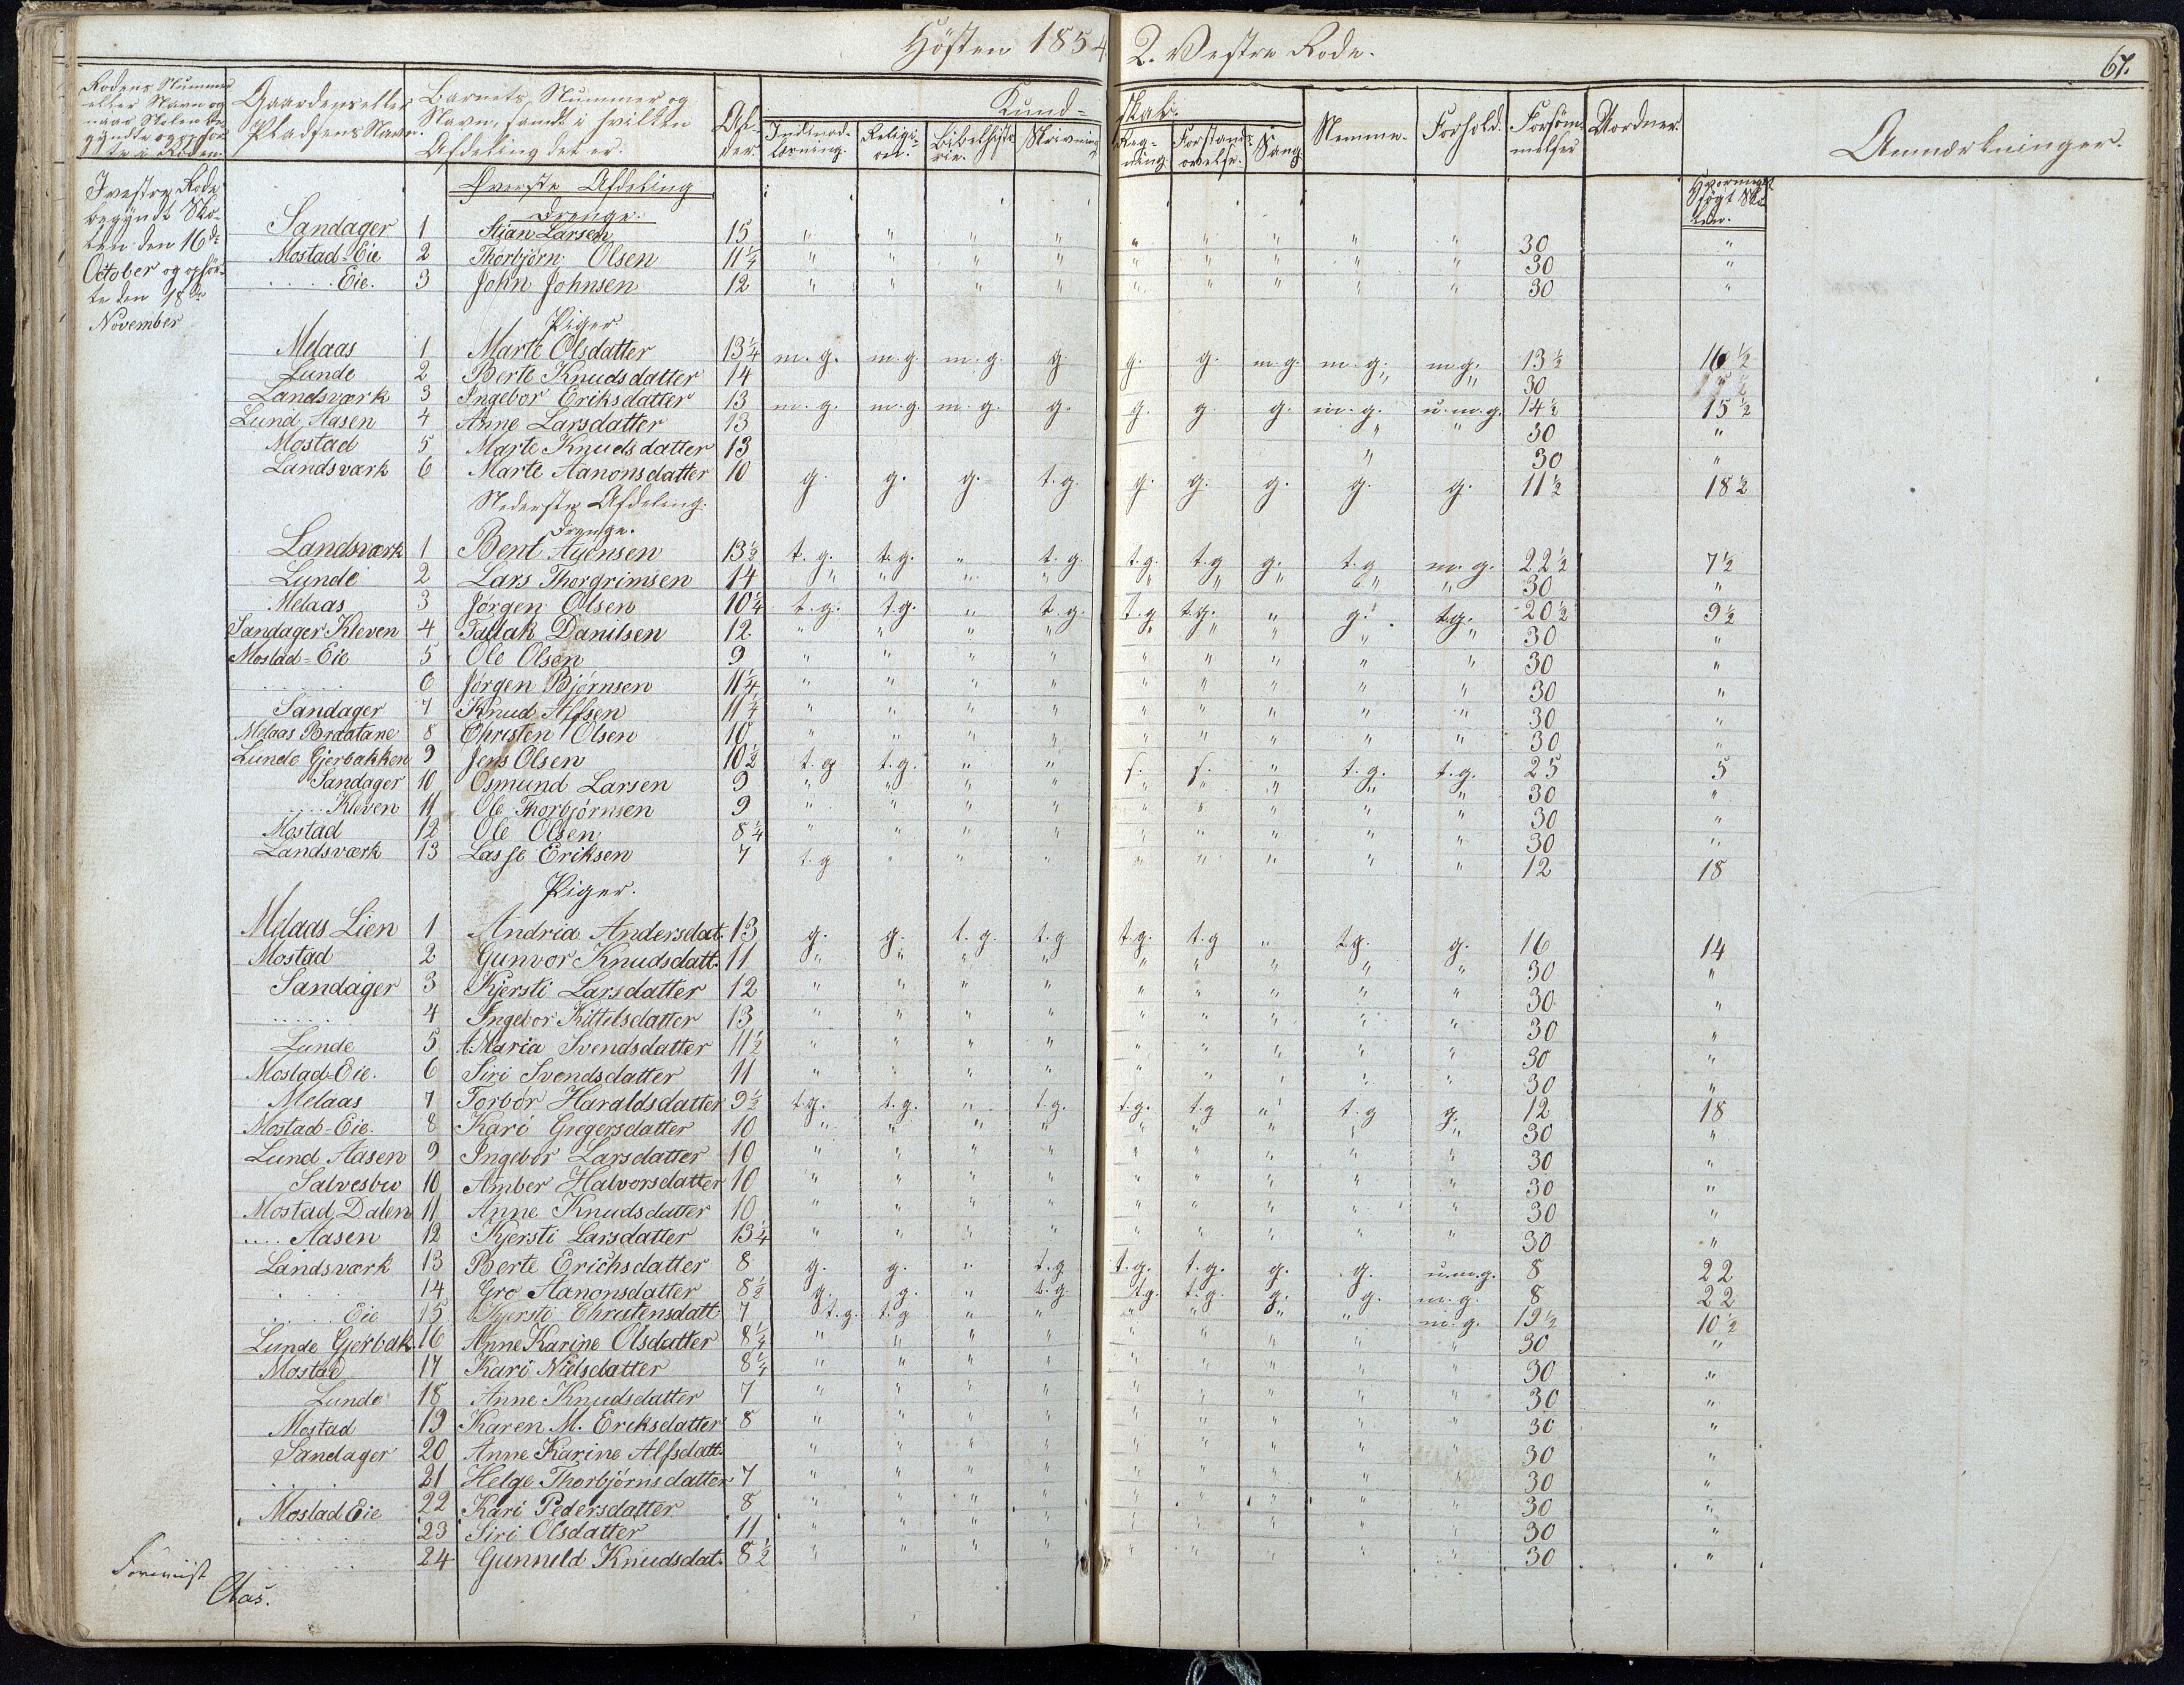 Hösten 1854 2. Vestre Rode. 67.
Rodens Nummer eller Navn og naar Skolen begyndte og ophörte i Roden.
Gaardens eller Pladsens Navn.
Barnets Nummer og Navn, samt i hvilken Afdeling det er.
Alder.
Kundskab.
Indenadlæsning. Religion. Bibelhistorie. Skrivning Regning. Forstandsøvelse. Sang
Nemme. Forhold. Forsömmelser Uordner. Anmærkninger.
I vestre Rode begyndt Skolen den 16de October og ophörte den 18de November
Øverste Afdeling
Drenge.
Sandager 1 Stian Larsen 15 " " " " " " " " " 30 "
Mostad-Eie 2 Thorbjörn Olsen 11¼ " " " " " " " " " 30 "
..... Eie. 3 John Johnsen 12 " " " " " " " " " 30 "
Piger.
Melaas 1 Marte Olsdatter 13¼ m.g. m.g. m.g. g. g. g. m.g. m.g. m.g. 13½ 16½
Lunde 2 Berte Knudsdatter 14 " " 30
Landsværk 3 Ingebor Eriksdatter 13 m.g. m.g. m.g. g. g. g. g. m.g. u.m.g. 14½ 15½
Lund Aasen 4 Anne Larsdatter 13 " " 30 "
Mostad 5 Marte Knudsdatter 13 " 30 "
Landsværk 6 Marte Aanonsdatter 10 g. g. g. t.g. g. g. g. g. g. 11½ 18½
Nederste Afdeling.
Drenge.
Landsværk 1 Bent Auensen 13½ t.g. t.g. " t.g. t.g. t.g g. t.g m.g. 22½ 7½
Lunde 2 Lars Thorgrimsen 14 " " " " " " " " " 30 "
Melaas 3 Jörgen Olsen 10¼ t.g. t.g. " t.g. t.g t.g. " g. t.g. 20½ 9½
Sandager Kleven 4 Tallak Danilsen 12 " " " " " " " " " 30 "
Mostad-Eie 5 Ole Olsen 9 " " " " " " " " " 30 "
...... 6 Jörgen Bjørnsen 11¼ " " " " " " " " " 30 "
Sandager 7 Knud Alfsen 11¼ " " " " " " " " " 30 "
Melaas Braatane 8 Christen Olsen 10 " " " " " " " " " 30 "
Lunde Gjerbakken 9 Jens Olsen 10½ t.g t.g. " " s. s. " t.g. t.g. 25 5
Sandager 10 Osmund Larsen 9 " " " " " " " " " 30 "
.... Kleven 11 Ole Thorbjørnsen 9 " " " " " " " " " 30 "
Mostad 12 Ole Olsen 8¼ " " " " " " " " " 30 "
Landsværk 13 Lasse Eriksen 7 t.g " " " " " " " " 12 18
Piger.
Melaas Lien 1 Andria Andersdat. 13 g. g. t.g. t.g. t.g. t.g " t.g. g. 16 14
Mostad 2 Gunvor Knudsdatt. 11 " " " " " " " " " 30 "
Sandager 3 Kjersti Larsdatter 12 " " " " " " " " " 30 "
..... 4 Ingebor Kittelsdatter 13 " " " " " " " " " 30 "
Lunde 5 A.Maria Svendsdatter 11½ " " " " " " " " " 30 "
Mostad-Eie. 6 Siri Svendsdatter 11 " " " " " " " " " 30 "
Melaas 7 Torbör Haraldsdatter 9½ t.g. t.g. " t.g. t.g. t.g " t.g g. 12 18
Mostad-Eie. 8 Kari Gregersdatter 10 " " " " " " " " " 30 "
Lund Aasen 9 Ingebor Larsdatter 10 " " " " " " " " " 30 "
Salvesbu 10 Amber Halvorsdatter 10 " " " " " " " " " 30 "
Mostad Dalen 11 Anne Knudsdatter 10 " " " " " " " " " 30 "
.... Aasen 12 Kjersti Larsdatter 13¼ " " " " " " " " " 30 "
Landsværk 13 Berte Erichsdatter 8 g. g. " t.g t.g. t.g. g. g. u.m.g. 8 22
..... 14 Gro Aanonsdatter 8½ g. g. " t.g. t.g. t.g. g. g. m.g. 8 22
.... Eie 15 Kjersti Christensdatt 7 t.g. t.g " " " " " " m.g. 19½ 10½
Lunde Gjerbak. 16 Anne Karine Olsdatter 8¼ " " " " " " " " " 30 "
Mostad 17 Kari Nielsdatter 8¼ " " " " " " " " " 30 "
Lunde 18 Anne Knudsdatter 7 " " " " " " " " " 30 "
Mostad 19 Karen M. Eriksdatter 8 " " " " " " " " " 30 "
Sandager 20 Anne Karine Alfsdatt. " " " " " " " " " 30 "
.... 21 Helge Thorbjørnsdatter 7 " " " " " " " " " 30 "
Mostad Eie 22 Kari Pedersdatter 8 " " " " " " " " " 30 "
..... 23 Siri Olsdatter 11 " " " " " " " " " 30 "
..... 24 Gunnild Knudsdat. 8½ " " " " " " " " " 30 "
Aas.